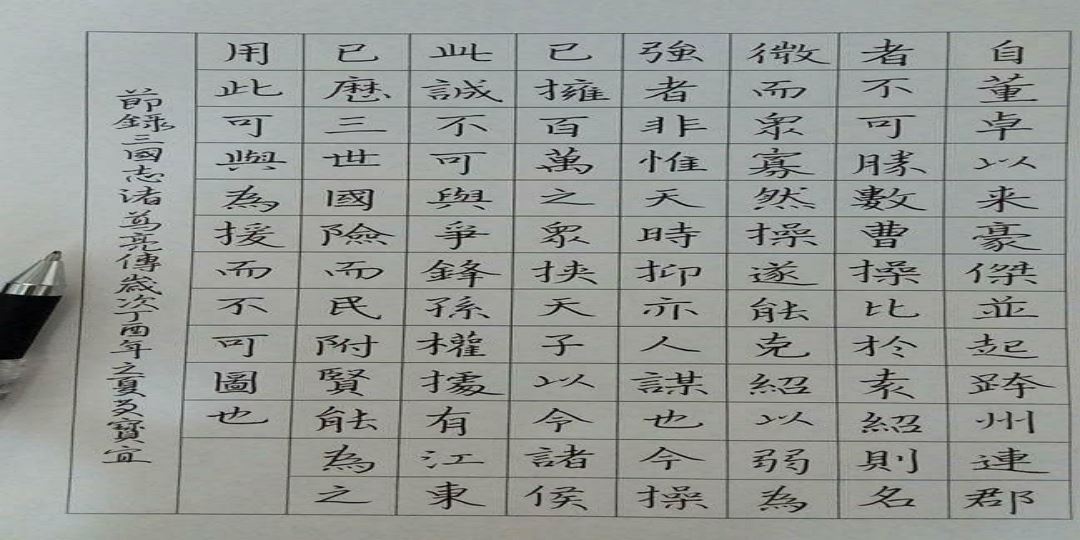 自董卓以来豪傑並起跨州連郡
者不可勝數曹操比於袁紹則名
微而眾寡然操遂能克紹以弱為
強者非惟天時抑亦人謀也今操
已擁百萬之眾挾天子以令諸侯
此誠不可與爭鋒孫權據有江東
已歷三世國險而民附賢能為之
用此可與為援而不可圖也
節錄三國志诸葛亮傳歲次丁酉年之夏